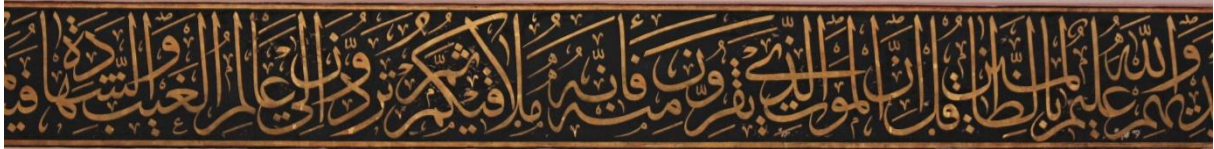 والله عليم بالظالمين قل ان الموت الذي تفرون منه فانه ملاقيكم ثم تردون الى عالم الغيب والشهادة